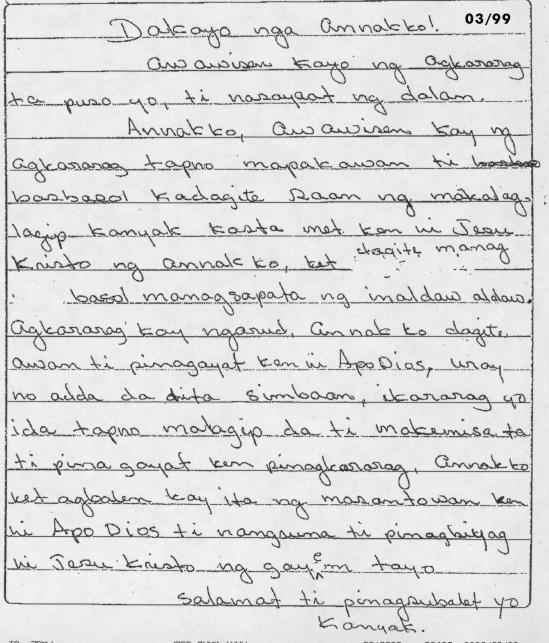 03/99
Dakayo nga annakko!
Awawisen kayo ng agkararag
ta puso yo, ti nasayaat ng dalan.
Annakko, awawisen kay ng
agkararag tapno mapakawan ti
basbasol kadagite saan ng makalag-
lagip kanyak kasta met ken ni Jesu
Kristo ng annak ko, ket dagiti manag
basol managsapata ng inaldaw aldaw.
Agkararag kay ngarud, annak ko dagite
awan ti pinagayat ken ni Apo Dios, uray
no adda da dita simbaan, ikararag yo
ida tapno malagip da ti makamisa ta
ti pina gayat ken pinagkararag, annakko
ket agbalen kay ita ng masantowan ken
ni Apo Dios ti nangsuna ti pinagbiyag
ni Jesu Kristo ng gayem tayo
salamat ti pinagsubalet yo
kanyak.